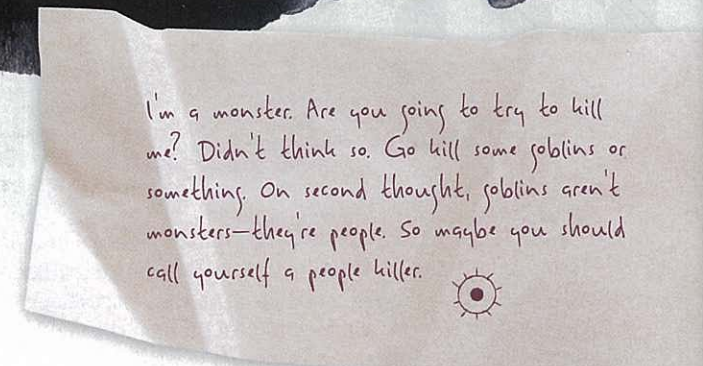 I'm a monster. Are you going to try to kill
me? Didn't think so. Go kill some goblins or
something. On second thought, goblins aren't
monsters—they're people. So maybe you should
call yourself a people killer.